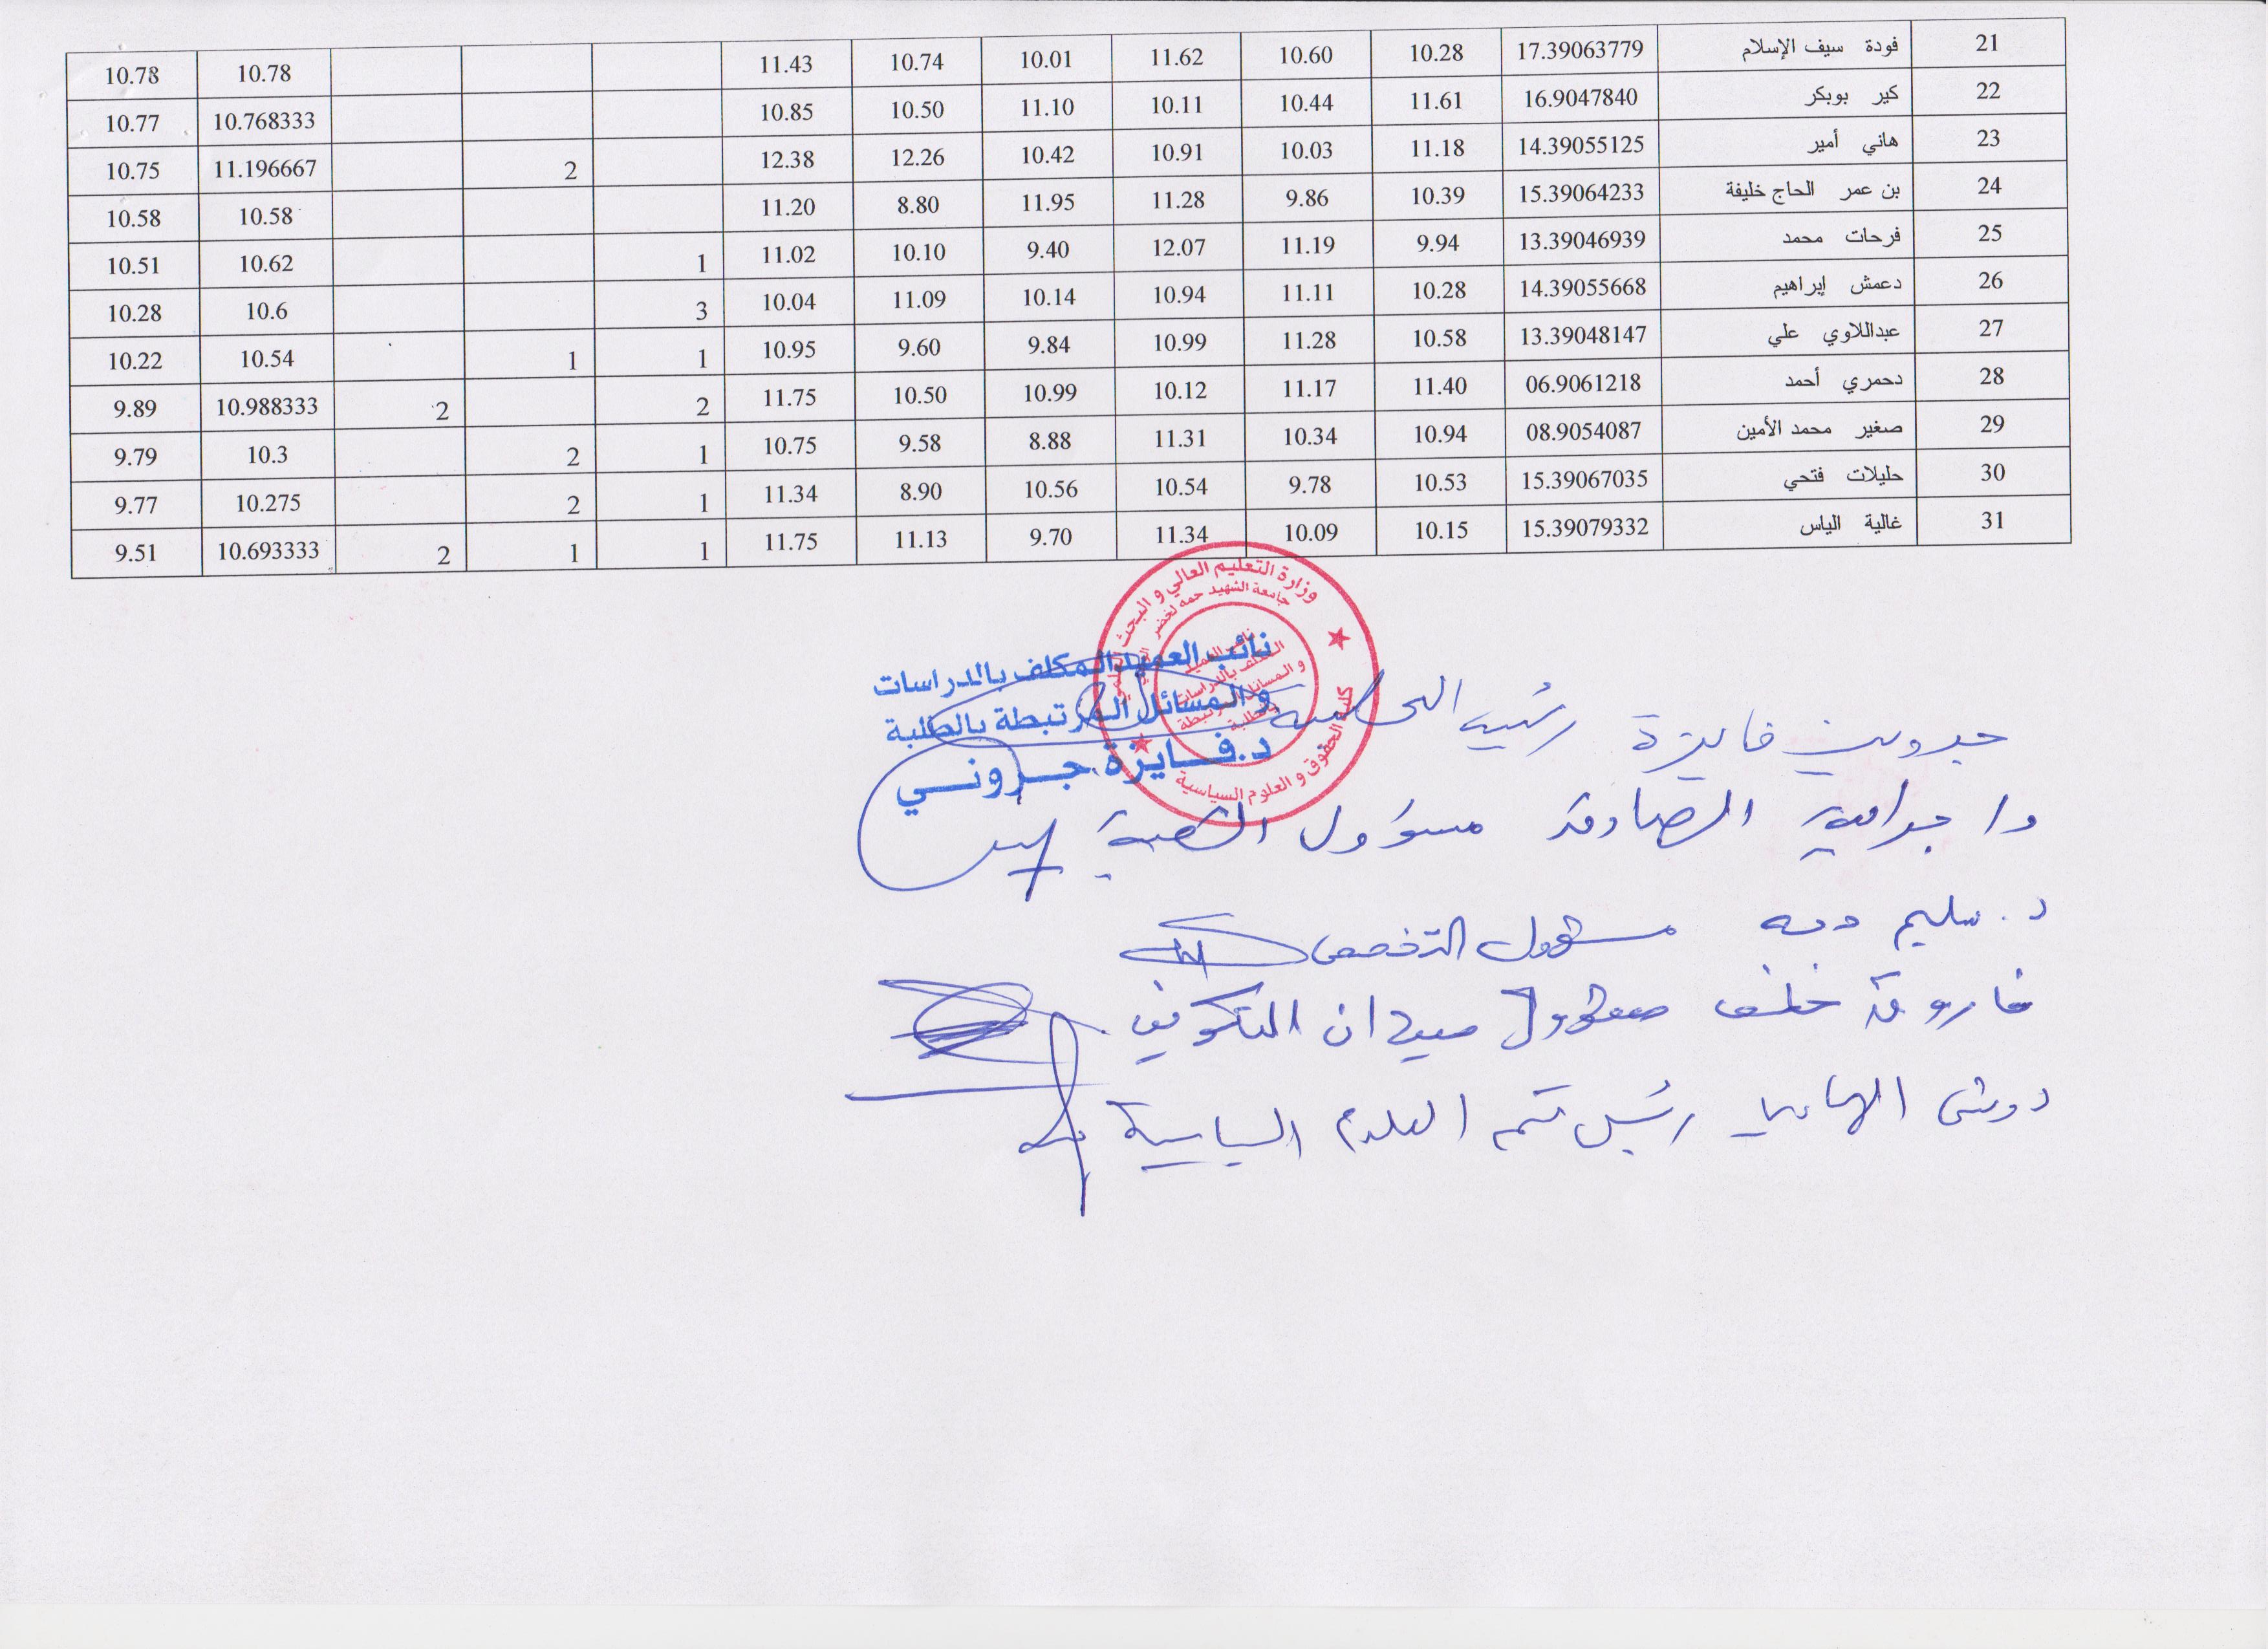 21 فودة سيف الإسلام 17.39063779 10.28 10.60 11.62 10.01 10.74 11.43 10.78 10.78
22 كير بوبكر 16.9047840 11.61 10.44 10.11 11.10 10.50 10.85 10.768333 10.77
23 هاني أمير 14.39055125 11.18 10.03 10.91 10.42 12.26 12.38 2 11.196667 10.75
24 بن عمر الحاج خليفة 15.39064233 10.39 9.86 11.28 11.95 8.80 11.20 10.58 10.58
25 فرحات محمد 13.39046939 9.94 11.19 12.07 9.40 10.10 11.02 1 10.62 10.51
26 دعمش إبراهيم 14.39055668 10.28 11.11 10.94 10.14 11.09 10.04 3 10.6 10.28
27 عبداللاوي علي 13.39048147 10.58 11.28 10.99 9.84 9.60 10.95 1 1 10.54 10.22
28 دحمري أحمد 06.9061218 11.40 11.17 10.12 10.99 10.50 11.75 2 2 10.988333 9.89
29 صغير محمد الأمين 08.9054087 10.94 10.34 11.31 8.88 9.58 10.75 1 2 10.3 9.79
30 حليلات فتحي 15.39067035 10.53 9.78 10.54 10.56 8.90 11.34 1 2 10.275 9.77
31 غالية الياس 15.39079332 10.15 10.09 11.34 9.70 11.13 11.75 1 1 2 10.693333 9.51
وزارة التعليم العالي و البحث العلمي
جامعة الشهيد حمه لخضر
كلية الحقوق و العلوم السياسية
نائب العميد المكلف بالدراسات
و المسائل المرتبطة بالطلبة
نائب العميد المكلف بالدراسات
و المسائل المرتبطة بالطلبة
د.فايزة جروني
جروني فايزة رئيسة اللجنة
الصادق مسؤول الشعبة
د. سليم مسؤول التخصص
فاروق خلف مسؤول ميدان التكوين
رئيس قسم العلوم السياسية